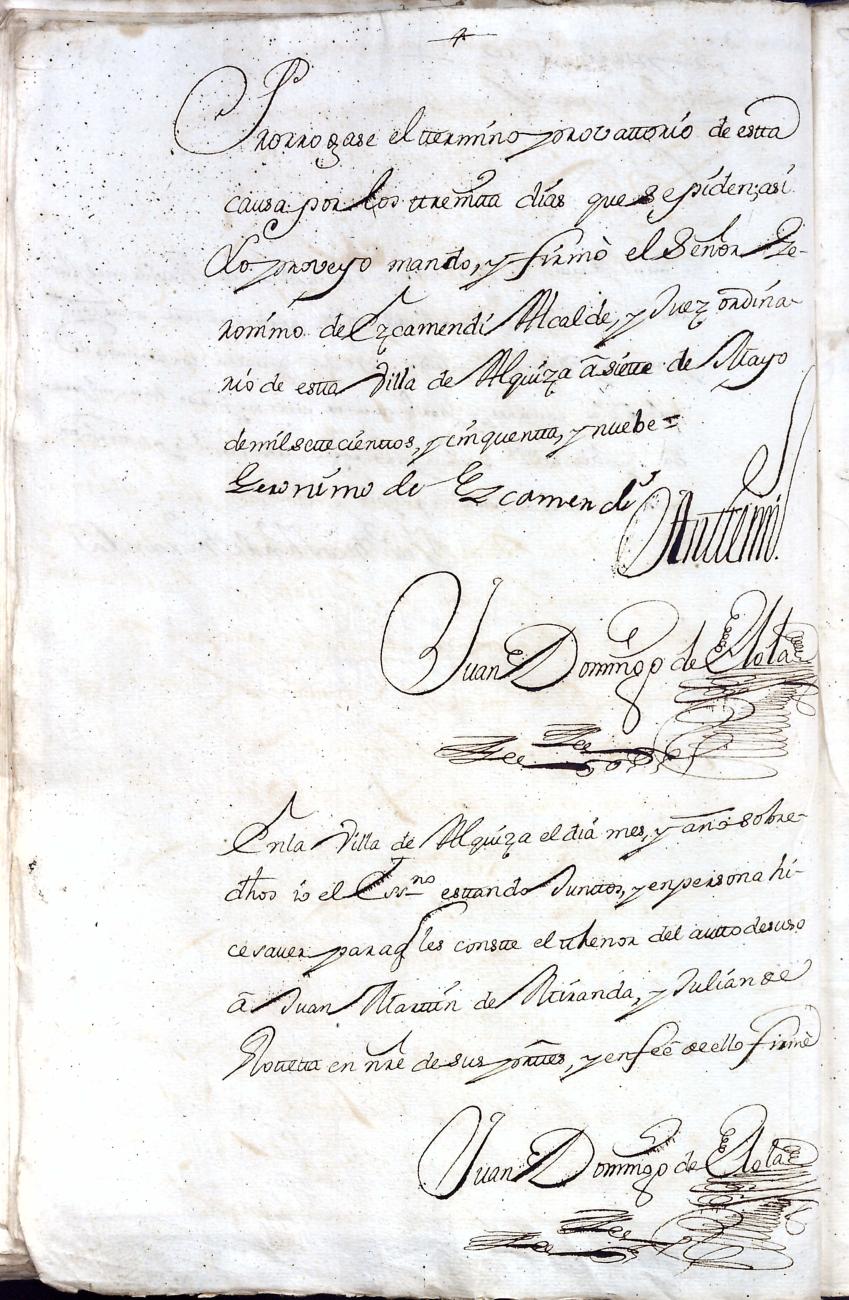 Prorrogase el ttermino provattorio de estta
causa por los ttreintta dias que se piden; asi
Lo proveyo mando, y firmò el Señor Ge-
ronimo de Ezcamendi Alcalde, y Juez ordina-
rio de estta Villa de Alquiza â siette de Mayo
de mil settecienttos, y cinquentta, y nuebe =
Geronimo de Ezcamendi
Anttemi
Juan Domingo de
En la Villa de Alquiza el dia mes, y año sobre-
dhos io el Essno esttando Junttos, y en persona hi-
ce saver para q les constte el tthenor del autto de suso
â Juan Marttin de Miranda, y Julian de
en nre de sus parttes, y en feê de ello firmè
Juan Domingo de